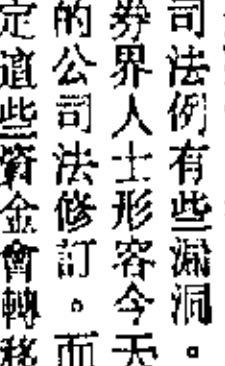 司法例有些漏洞。
券界人士形容今天
的公司法修訂。而
定這些資金會轉移